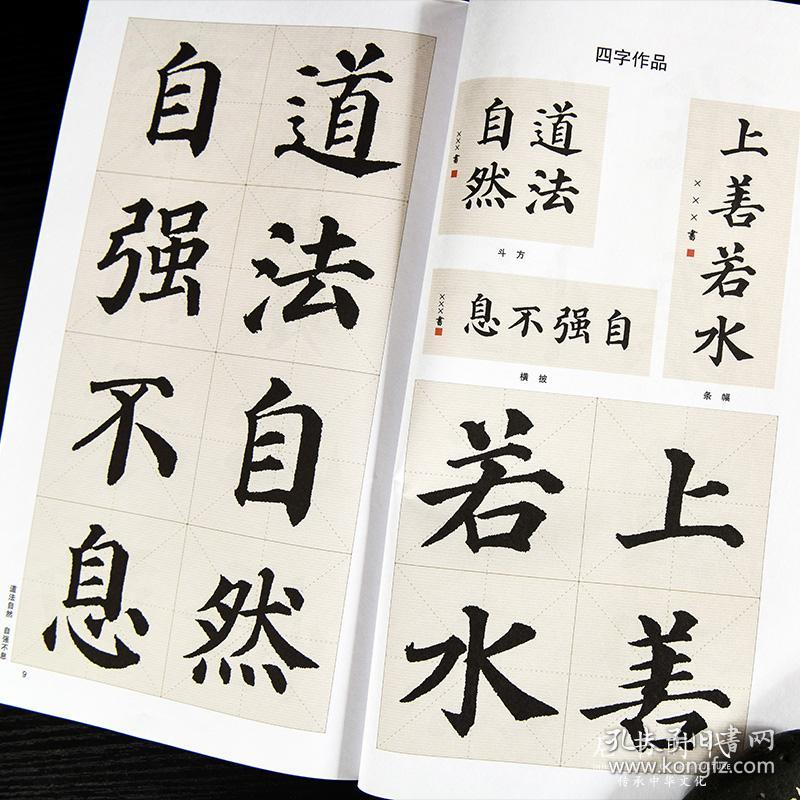 四字作品
道法
自然
×××书
斗方
自强不息
×××书
横披
上善若水
×××书
条幅
上善
若水
道法自然
自强不息
道法自然 自强不息
9
孔夫子旧书网
www.kongfz.com
传承中华文化